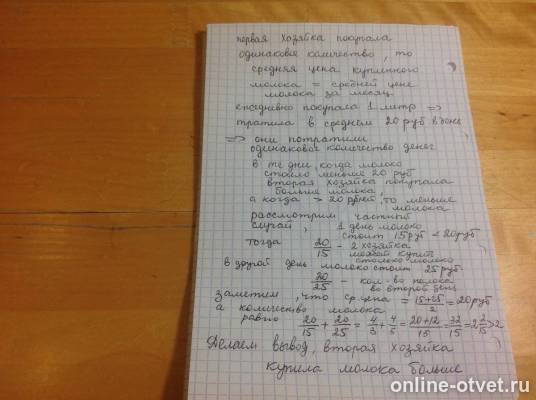 первая хозяйка покупала
одинаковое количество, то
средняя цена купленного
молока = средней цене
молока за месяц
ежедневно покупала 1 литр =>
тратила в среднем 20 руб в день
=> они потратили
одинаковое количество денег
в те дни, когда молоко
стоило меньше 20 руб
вторая хозяйка покупала
больше молока,
а когда > 20 рублей, то меньше
молока
рассмотрим частный
случай, 1 день молоко
стоит 15 руб < 20 руб
тогда 20/15 - 2 хозяйка
может купит
столько молока
в другой день молоко стоит 25 руб.
20/25 - кол-во молока
во второй день
заметим, что ср.цена = (15+25)/2 = 20 руб
а количество молока
равно 20/15 + 20/25 = 4/3 + 4/5 = (20+12)/15 = 32/15 = 2 2/15 > 2
Делаем вывод, вторая хозяйка
купила молока больше
online-otvet.ru